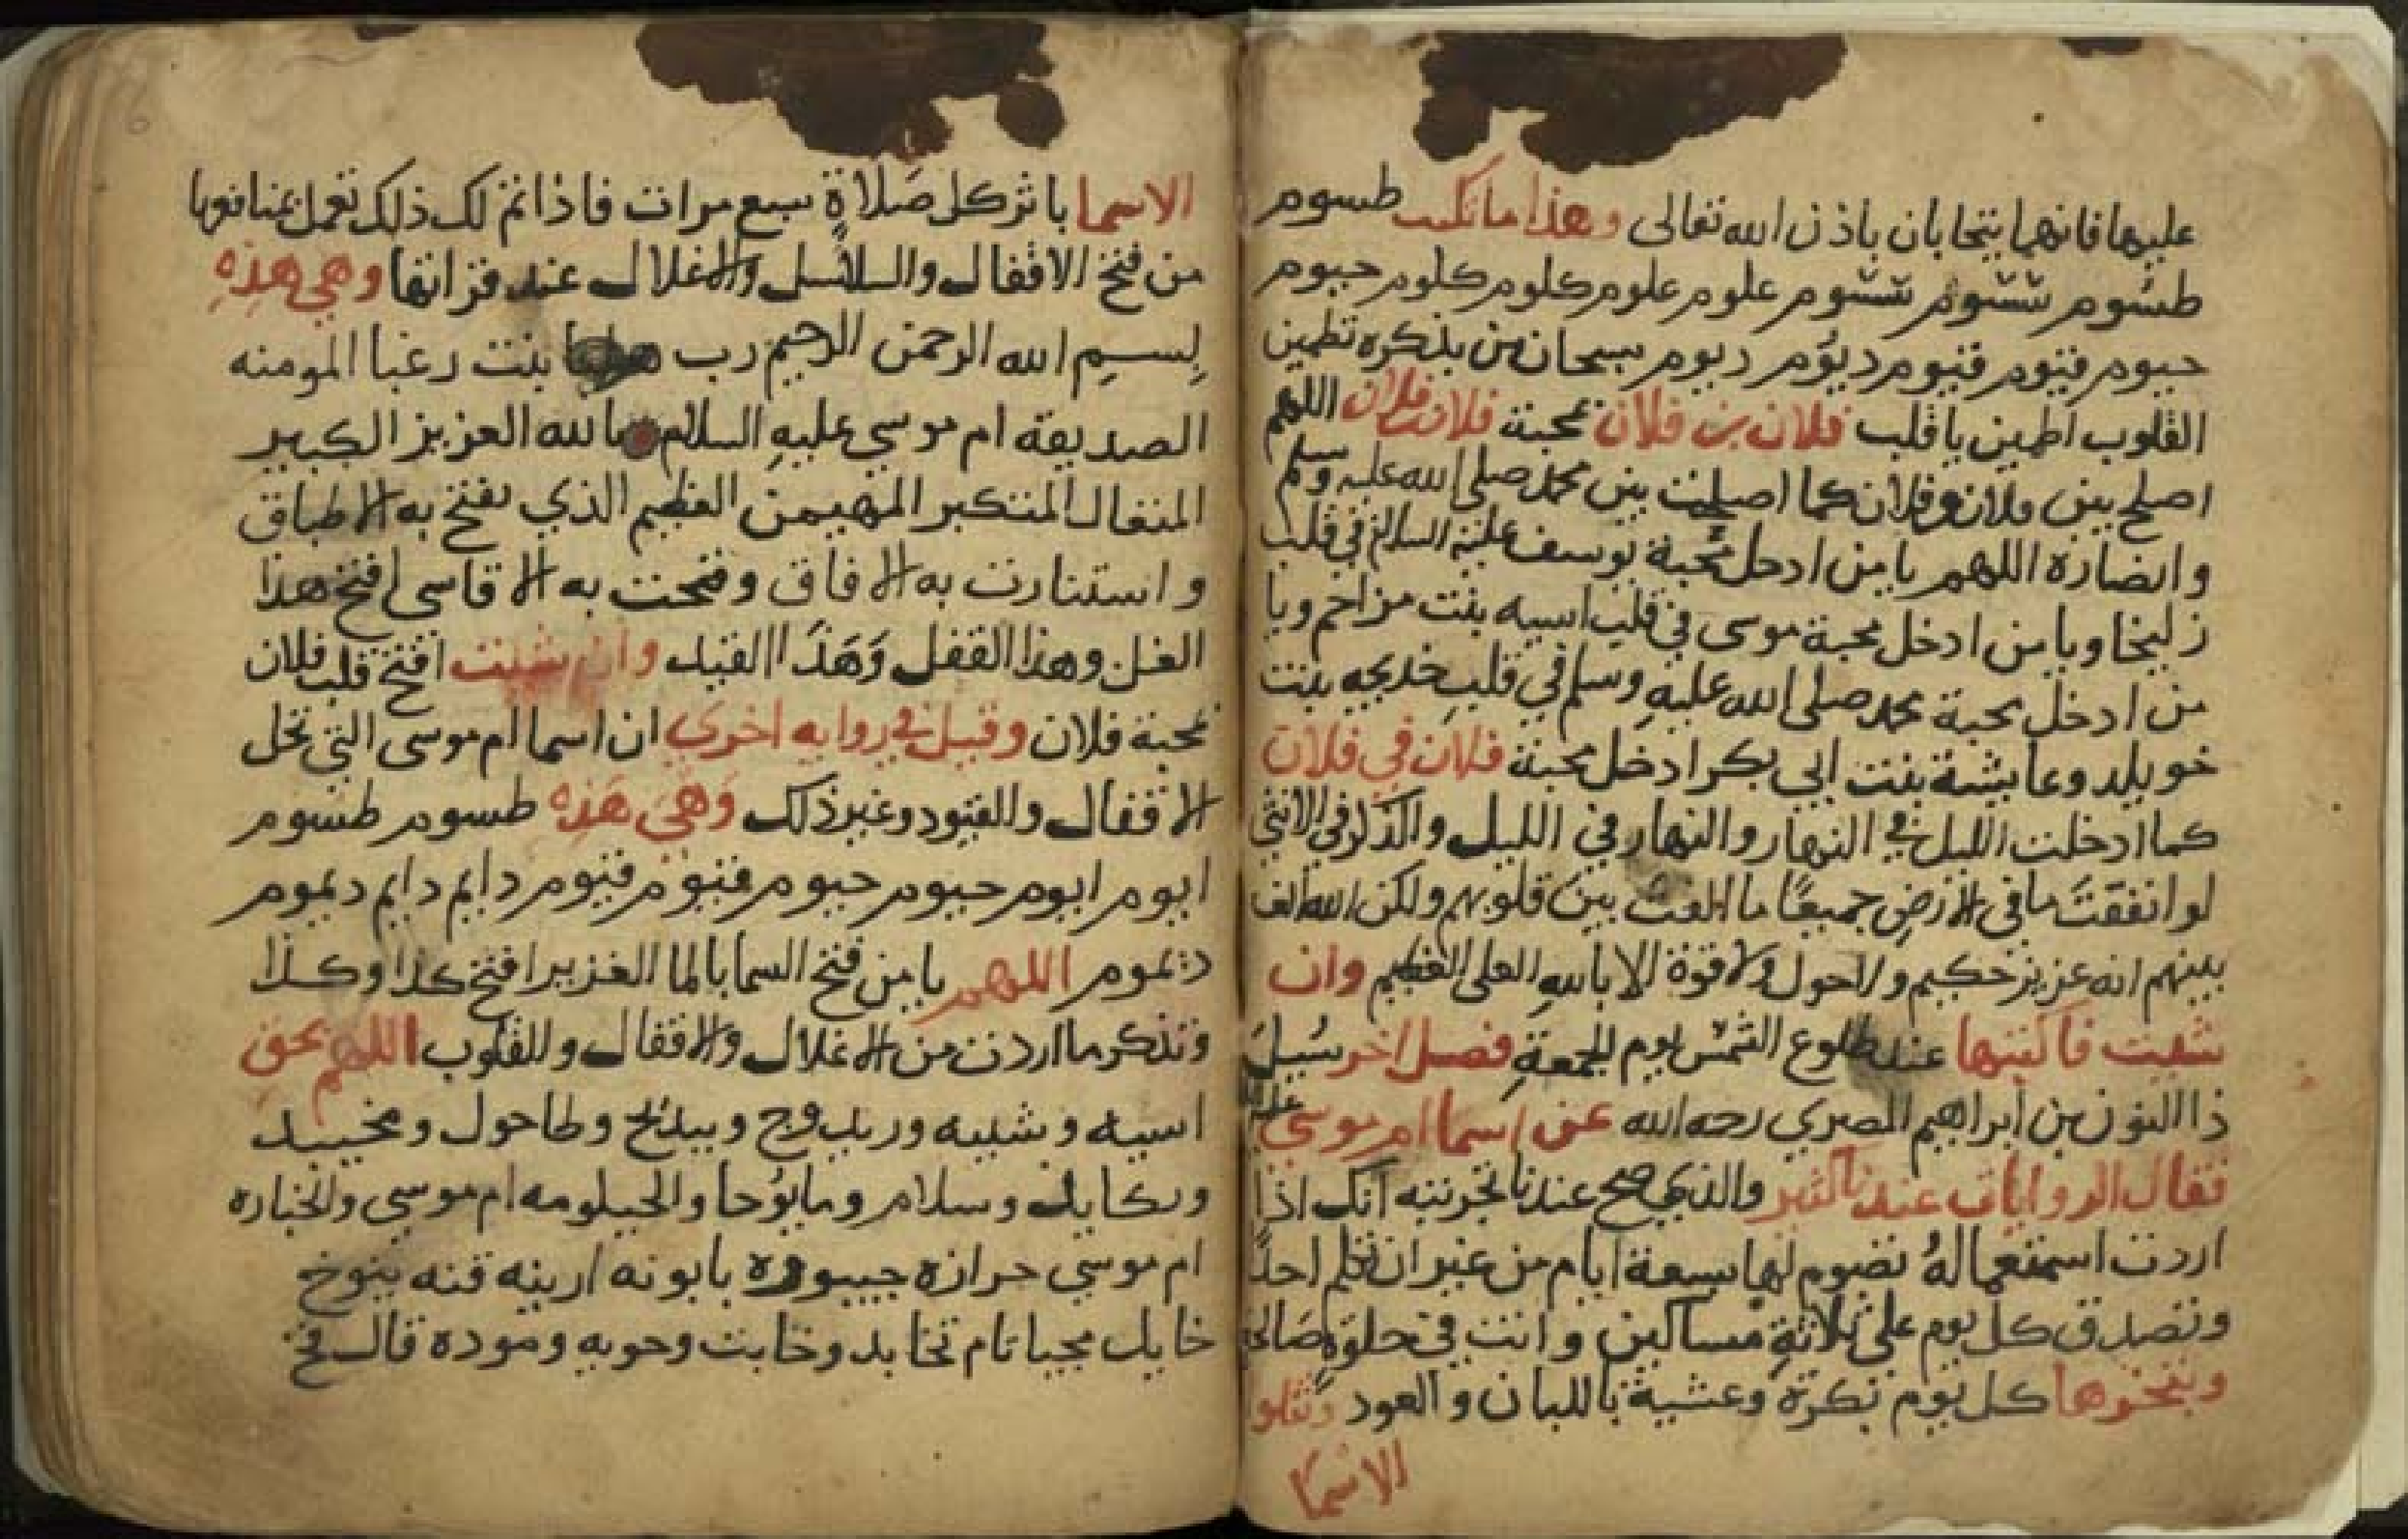 عليها فانهما يتحابان باذن الله تعالى وهذا ما تكتب طسوم
طسوم شتسوم شتسوم علوم علوم كلوم كلوم حيوم
حيوم قيوم قيوم ديوم ديوم سبحان من بذكره تطمين
القلوب اطمين يا قلب فلان بن فلان بمحبة فلان بن فلان اللهم
اصلح بين فلان وفلان كما اصلحت بين محمد صلى الله عليه وسلم
وانصاره اللهم يا من ادخل محبة يوسف عليه السلام في قلب
زليخا ويا من ادخل محبة موسى في قلب اسيه بنت مزاحم ويا
من ادخل محبة محمد صلى الله عليه وسلم في قلب خديجه بنت
خويلد وعايشة بنت ابي بكر ادخل محبة فلان في فلان
كما ادخلت الليل في النهار والنهار في الليل والذكر في الانثى
لو انفقت ما في الارض جميعا ما الفت بين قلوبهم ولكن الله الف
بينهم انه عزيز حكيم ولا حول ولا قوة الا بالله العلي العظيم وان
شيت فاكتبها عند طلوع الشمس يوم الجمعة فصل اخر سيل
ذا النون بن ابراهيم المصري رحمه الله عن اسما ام موسى عليه
فقال الروايات عندنا كثير والذي صح عندنا تجربته انك اذا
اردت استعماله تصوم لها سبعة ايام من غير ان تظلم احدا
وتصدق كل يوم على ثلاثة مساكين وانت في خلوة صالحة
وتبخرها كل يوم بكرة وعشية باللبان والعود وتتلوا
الاسما
الاسما باثر كل صلاة سبع مرات فاذا تم لك ذلك تعمل بمنافعها
من فتح الاقفال والسلاسل والاغلال عند قراتها وهي هذه
بسم الله الرحمن الرحيم رب بنت رغبا المومنه
الصديقة ام موسى عليه السلام بالله العزيز الكبير
المتعال المتكبر المهيمن العظيم الذي يفتح به الاطباق
واستنارت به الافاق وفتحت به الاقاسى افتح هذا
الغل وهذا القفل وهذا القيد وان شيت افتح قلب فلان
بمحبة فلان وقيل في روايه اخرى ان اسما ام موسى التي تحل
الاقفال والقيود وغير ذلك وهي هذه طسوم طسوم
ايوم ايوم حيوم حيوم قيوم قيوم دايم دايم ديموم
ديموم اللهم يا من فتح السما بالما الغزير افتح كذا وكذا
وتذكر ما اردت من الاغلال والاقفال والقلوب اللهم بحق
اسيه وشبيه وطاحول
وسلام ام موسى
ام موسى بابونه
قال فخ